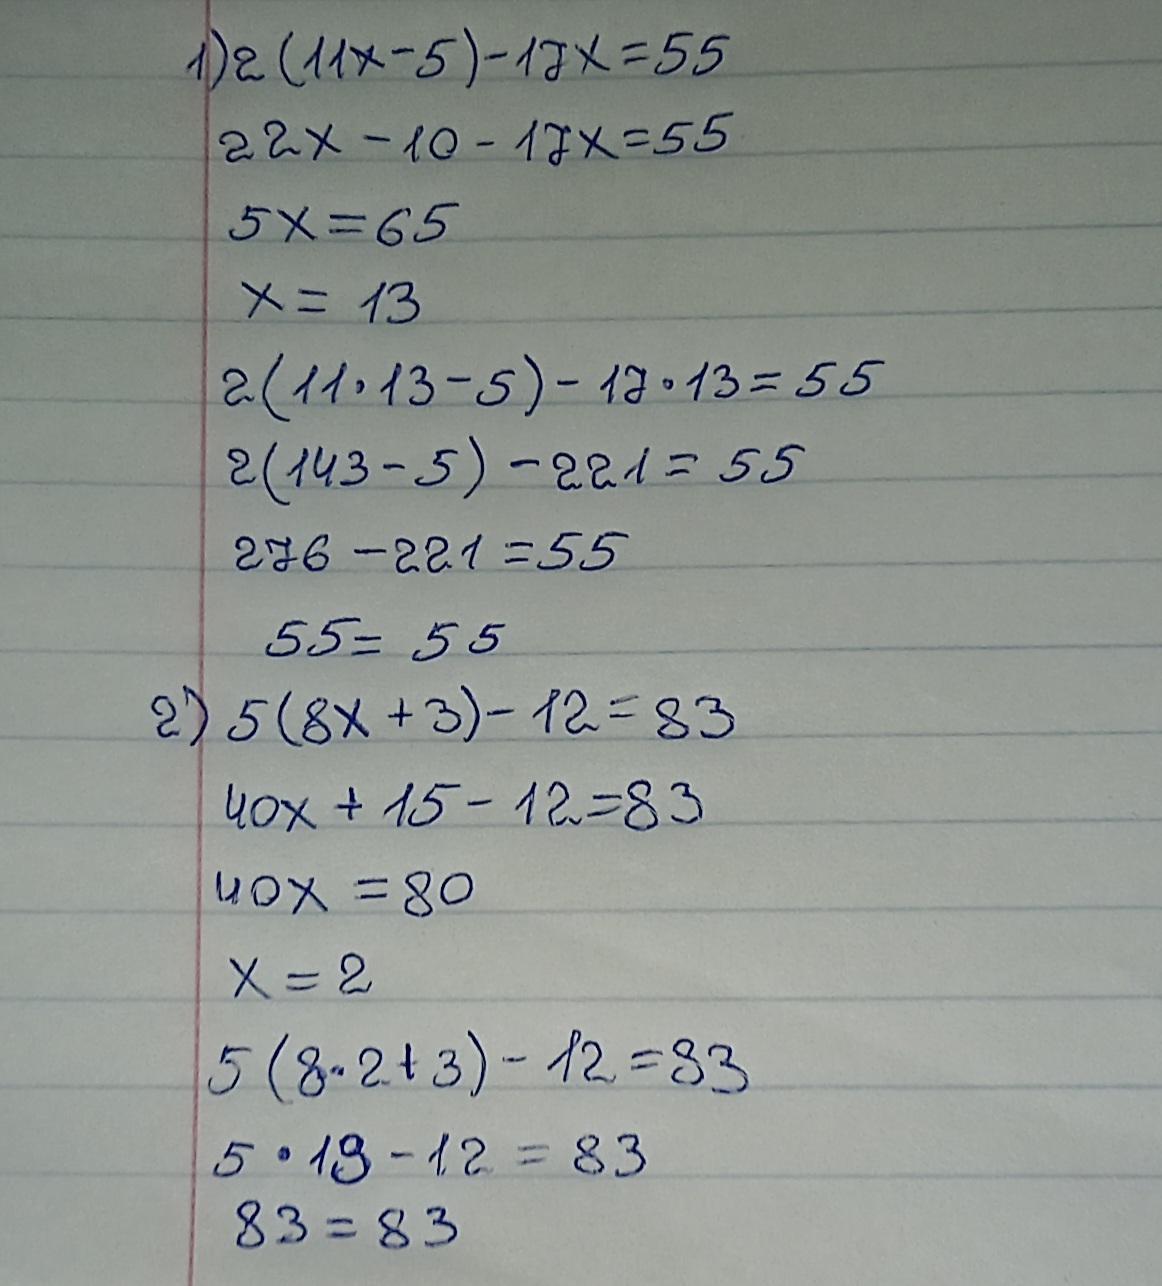 1) 2(11x-5)-17x=55
22x-10-17x=55
5x=65
x=13
2(11·13-5)-17·13=55
2(143-5)-221=55
276-221=55
55=55
2) 5(8x+3)-12=83
40x+15-12=83
40x=80
x=2
5(8·2+3)-12=83
5·19-12=83
83=83